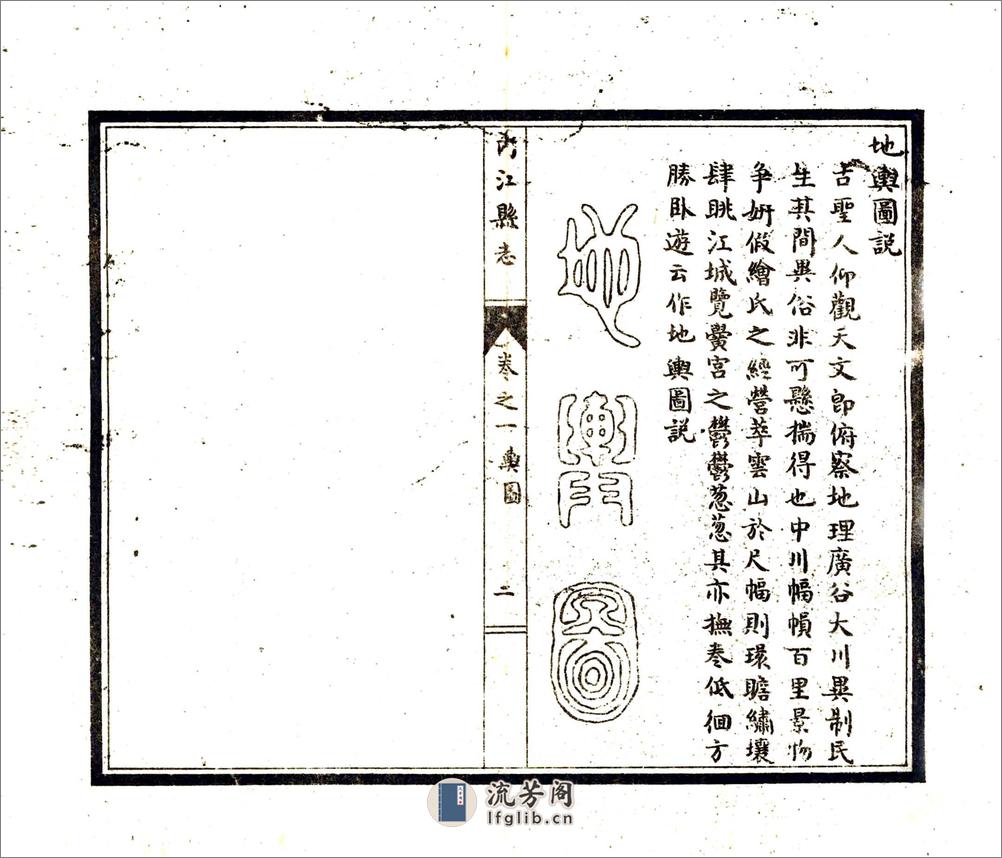 地輿圖說
古聖人仰觀天文即俯察地理廣谷大川異制民
生其間異俗非可懸揣得也中川幅幀百里景物
争妍假繪氏之經營萃雲山於尺幅則環瞻繡壤
肆眺江城覽黌宮之鬱鬱葱葱其亦撫卷低徊方
勝卧遊云作地輿圖說
地輿圖
内江縣志 卷之一 輿圖 二
流芳阁
lfglib.cn